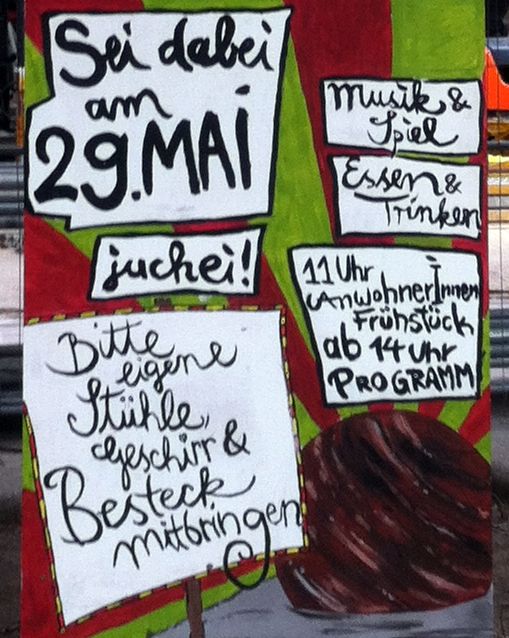 Sei dabei
am
29. MAI
juchei!
Bitte
eigene
Stühle,
Geschirr &
Besteck
mitbringen
Musik &
Spiel
Essen &
Trinken
11 Uhr
AnwohnerInnen
Frühstück
ab 14 Uhr
PROGRAMM